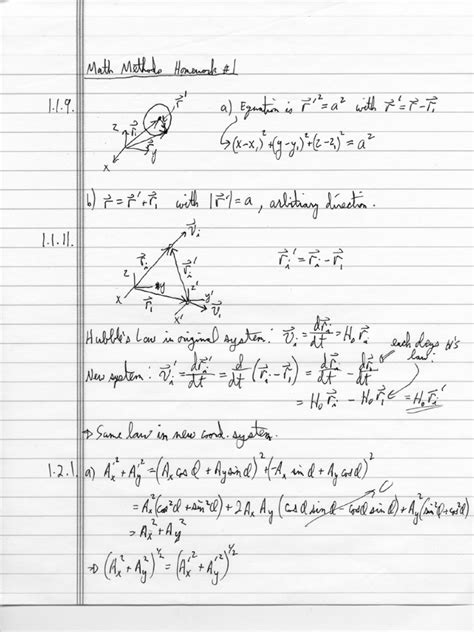 Math Methods Homework #1
1.1.9.
a) Equation is r⃗'² = a² with r⃗' = r⃗ - r⃗₁
↳ (x-x₁)² + (y-y₁)² + (z-z₁)² = a²
b) r⃗ = r⃗' + r⃗₁ with |r⃗'| = a, arbitrary direction.
1.1.11.
r⃗ᵢ' = r⃗ᵢ - r⃗₁
Hubble's Law in original system: v⃗ᵢ = dr⃗ᵢ/dt = H₀ r⃗ᵢ
each obeys H's law.
New system: v⃗ᵢ' = dr⃗ᵢ'/dt = d/dt (r⃗ᵢ - r⃗₁) = dr⃗ᵢ/dt - dr⃗₁/dt
= H₀ r⃗ᵢ - H₀ r⃗₁ = H₀ r⃗ᵢ'
⇒ Same law in new coord. system.
1.2.1. a) Aₓ'² + Aᵧ'² = (Aₓ cos φ + Aᵧ sin φ)² + (-Aₓ sin φ + Aᵧ cos φ)²
= Aₓ² (cos²φ + sin²φ) + 2Aₓ Aᵧ (cos φ sin φ - cos φ sin φ) + Aᵧ² (sin²φ + cos²φ)
= Aₓ² + Aᵧ²
⇒ (Aₓ² + Aᵧ²)^½ = (Aₓ'² + Aᵧ'²)^½